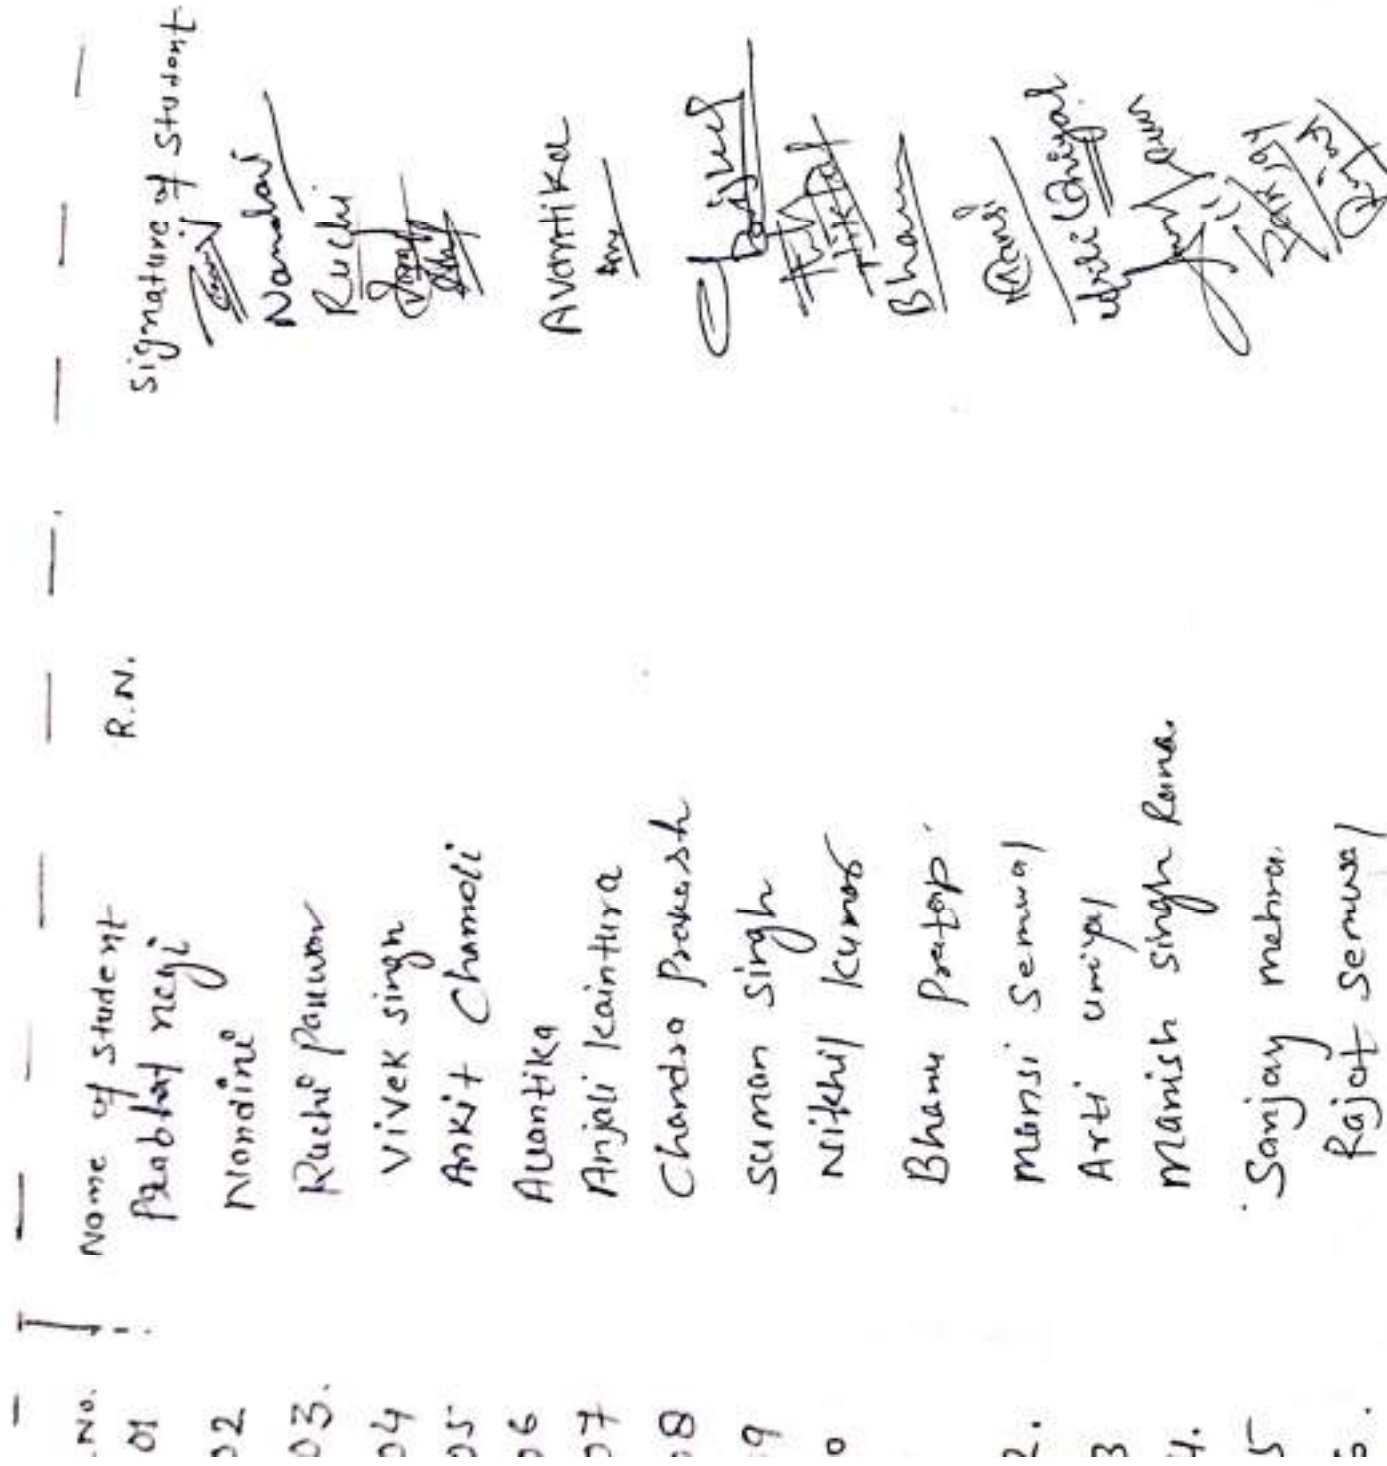 .No. Name of student R.N. signature of student
01 Prabhat negi
02 Nandini Nandani
03. Ruchi Panwar Ruchi
04 Vivek singh
05 Ankit Chamoli
06 Avantika Avantika
07 Anjali Kaintura
08 Chandra Prakash
9 Suman Singh
0 Nikhil Kumar
Bhanu Pratap Bhanu
2. Mansi Semwal Mansi
3 Arti Uniyal
4. Manish Singh Rana.
5 Sanjay mehra. Sanjay
6. Rajat Semwal Rajat